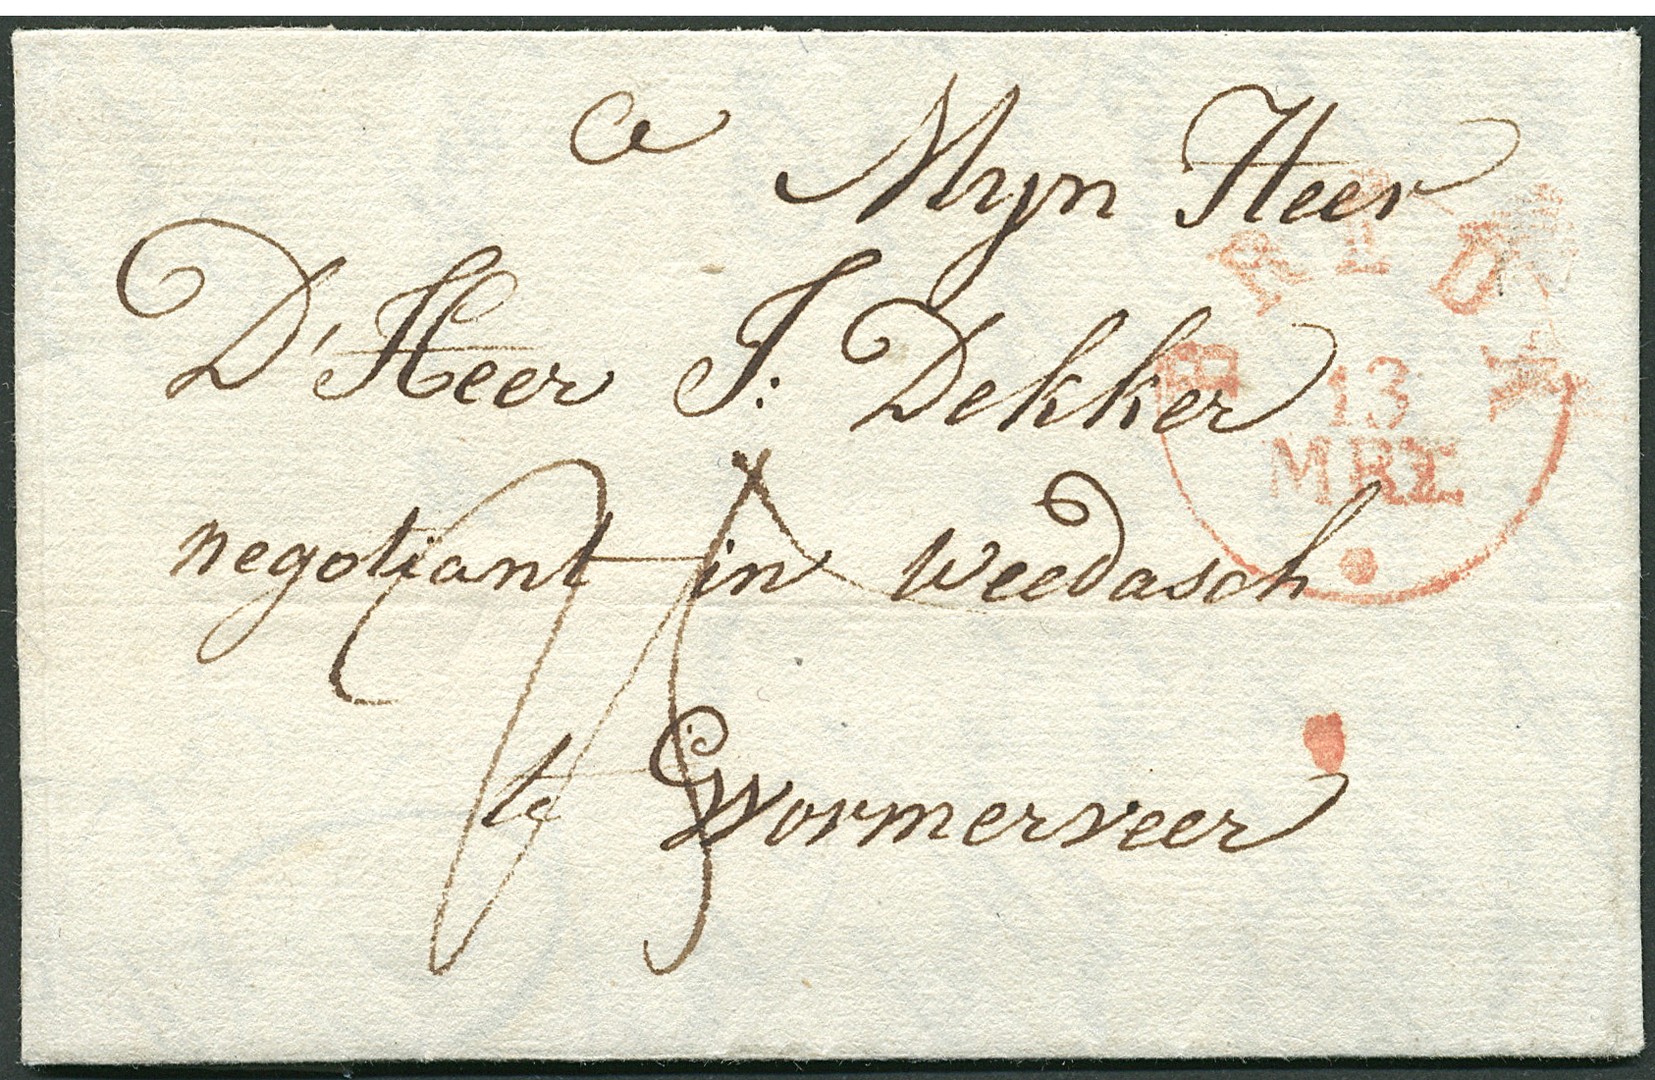 a Mijn Heer
D' Heer J: Dekker
negotiant in Weedasch
te Wormerveer
13
MRT